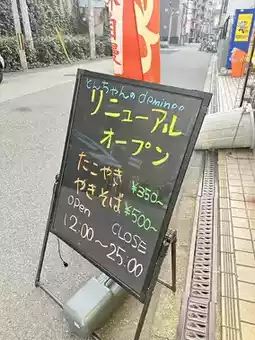 とんちゃんのdominoo
リニューアル
オープン
たこやき ¥350~
やきそば ¥500~
OPen CLOSE
12:00~25:00